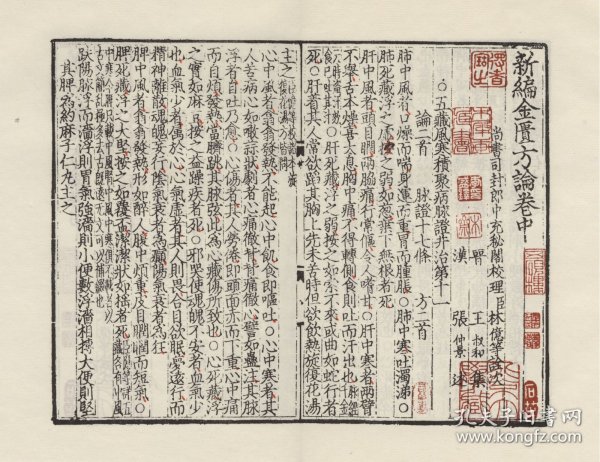 新編金匱方論卷中
尚書司封郎中充秘閣校理臣林億等詮次
晉 王叔和 集
漢 張仲景 述
○五藏風寒積聚病脉證并治第十一
論二首 脉證十七條 方二首
肺中風者口燥而喘身運而重冒而腫脹○肺中寒吐濁涕○
肺死藏浮之虛按之弱如葱葉下無根者死
肝中風者頭目瞤兩脇痛行常傴令人嗜甘○肝中寒者兩臂
不舉舌本燥喜太息胸中痛不得轉側食則吐而汗出也
○肝死藏浮之弱按之如索不來或曲如蛇行者
死○肝著其人常欲蹈其胸上先未苦時但欲飲熱旋復花湯
主之
心中風者翕翕發熱不能起心中飢食即嘔吐○心中寒者其
人苦病心如噉蒜狀劇者心痛徹背背痛徹心譬如蠱注其脉
浮者自吐乃愈○心傷者其人勞倦即頭面赤而下重心中痛
而自煩發熱當臍跳其脉弦此為心藏傷所致也○心死藏浮
之實如麻豆按之益躁疾者死○邪哭使魂魄不安者血氣少
也血氣少者屬於心心氣虛者其人則畏合目欲眠夢遠行而
精神離散魂魄妄行陰氣衰者為癲陽氣衰者為狂
脾中風者翕翕發熱形如醉人腹中煩重皮目瞤瞤而短氣○
脾死藏浮之大堅按之如覆盃潔潔狀如搖者死
趺陽脉浮而濇浮則胃氣強濇則小便數浮濇相摶大便則堅
其脾為約麻子仁丸主之
孔夫子旧书网
www.kongfz.com